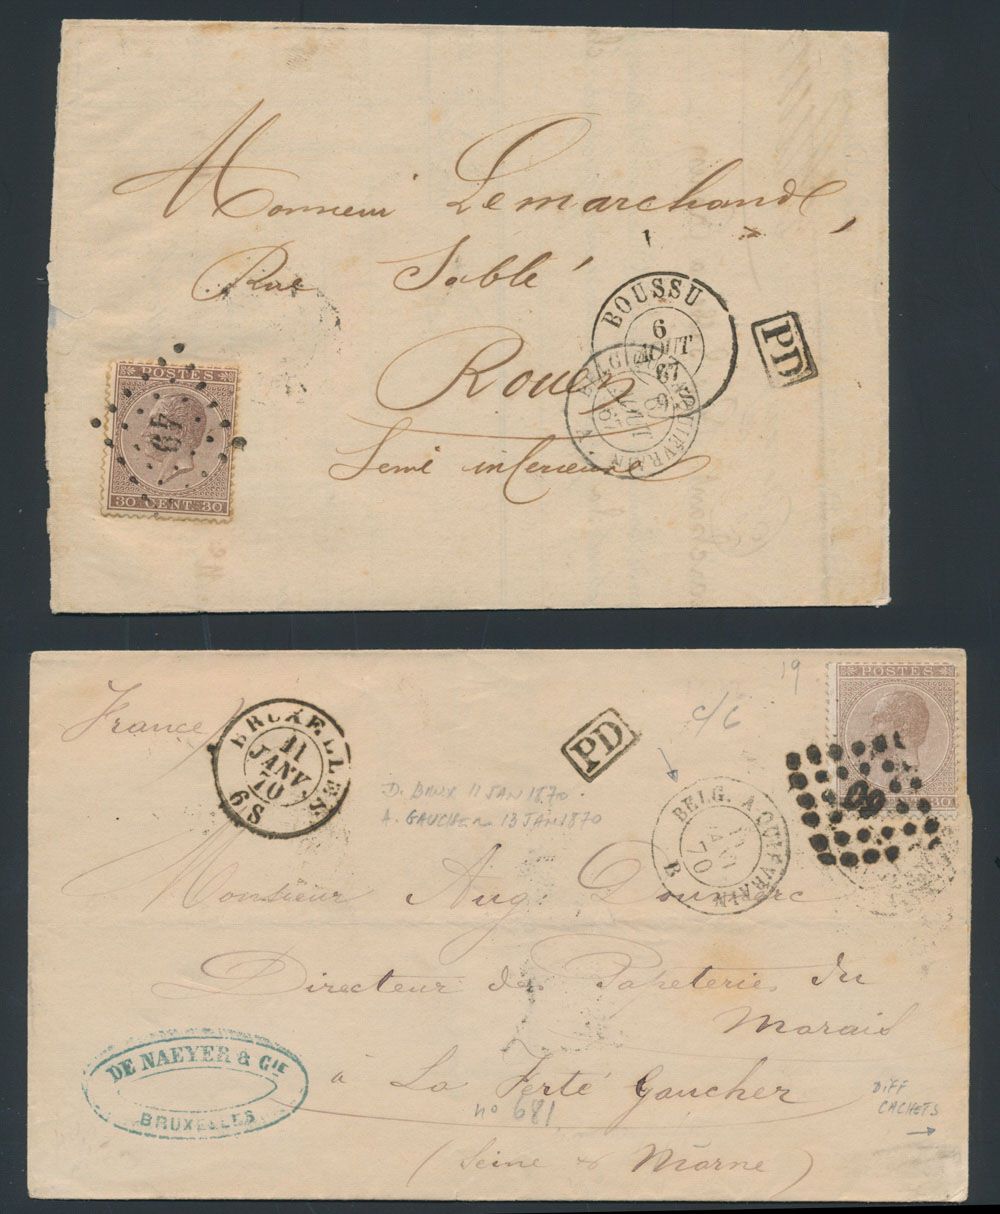 Monsieur Lemarchand,
Rue Sablé
Rouen
Seine inférieure
BOUSSU
6
AOUT
67
PD
BELG. A QUIÉVRAIN
POSTES
49
30 CENT. 30
France
BRUXELLES
11
JANV.
70
6S
PD
c/6
19
POSTES
D. BRUX 11 JAN 1870
A. GAUCHER 13 JAN 1870
BELG. A QUIÉVRAIN
70
B
Monsieur Aug. Doumerc
Directeur des Papeteries du
Marais
à La Ferté Gaucher
(Seine & Marne)
DE NAEYER & CIE
BRUXELLES
no 681
DIFF
CACHETS